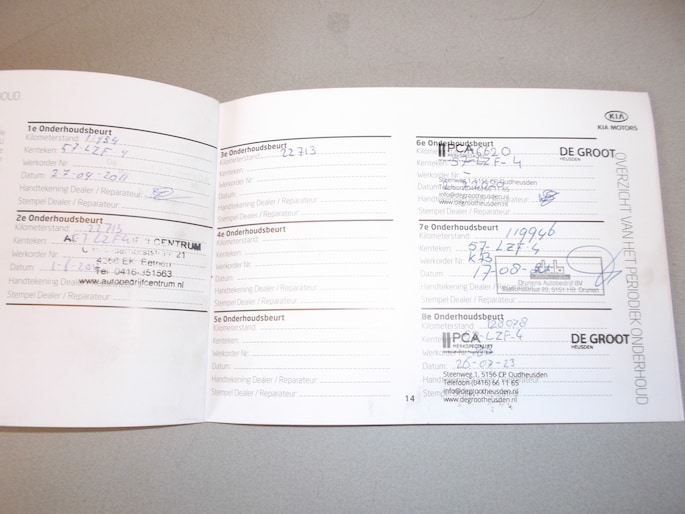 HOUD
1e Onderhoudsbeurt
Kilometerstand
Kenteken 57-LZF-4
Werkorder Nr.
Datum 27-04-2011
Handtekening Dealer / Reparateur
Stempel Dealer / Reparateur
2e Onderhoudsbeurt
Kilometerstand 22713
Kenteken CENTRUM
Werkorder Nr. 21
Datum
Tel. 0416-351563
Handtekening Dealer
www.autobedrijfcentrum.nl
Stempel Dealer / Reparateur
3e Onderhoudsbeurt
Kilometerstand 22713
Kenteken
Werkorder Nr.
Datum
Handtekening Dealer / Reparateur
Stempel Dealer / Reparateur
4e Onderhoudsbeurt
Kilometerstand
Kenteken
Werkorder Nr.
Datum
Handtekening Dealer / Reparateur
Stempel Dealer / Reparateur
5e Onderhoudsbeurt
Kilometerstand
Kenteken
Werkorder Nr.
Datum
Handtekening Dealer / Reparateur
Stempel Dealer / Reparateur
14
KIA
KIA MOTORS
OVERZICHT VAN HET PERIODIEK ONDERHOUD
6e Onderhoudsbeurt
PCA DE GROOT
HEUSDEN
Kenteken 57-LZF-4
Werkorder Nr.
Steenweg 1, 5156 CP Oudheusden
Datum
info@degrootheusden.nl
Handtekening Dealer / Reparateur
www.degrootheusden.nl
Stempel Dealer / Reparateur
7e Onderhoudsbeurt
Kilometerstand 119946
Kenteken 57-LZF-4
Werkorder Nr.
Datum 17-08-
Drunens Autobedrijf BV
Handtekening Dealer
Stempel Dealer / Reparateur
8e Onderhoudsbeurt
Kilometerstand 128078
PCA DE GROOT
MERKSPECIALIST HEUSDEN
Kenteken 57-LZF-4
Werkorder Nr.
Datum 26-07-23
Steenweg 1, 5156 CP Oudheusden
Telefoon (0416) 66 11 65
info@degrootheusden.nl
www.degrootheusden.nl